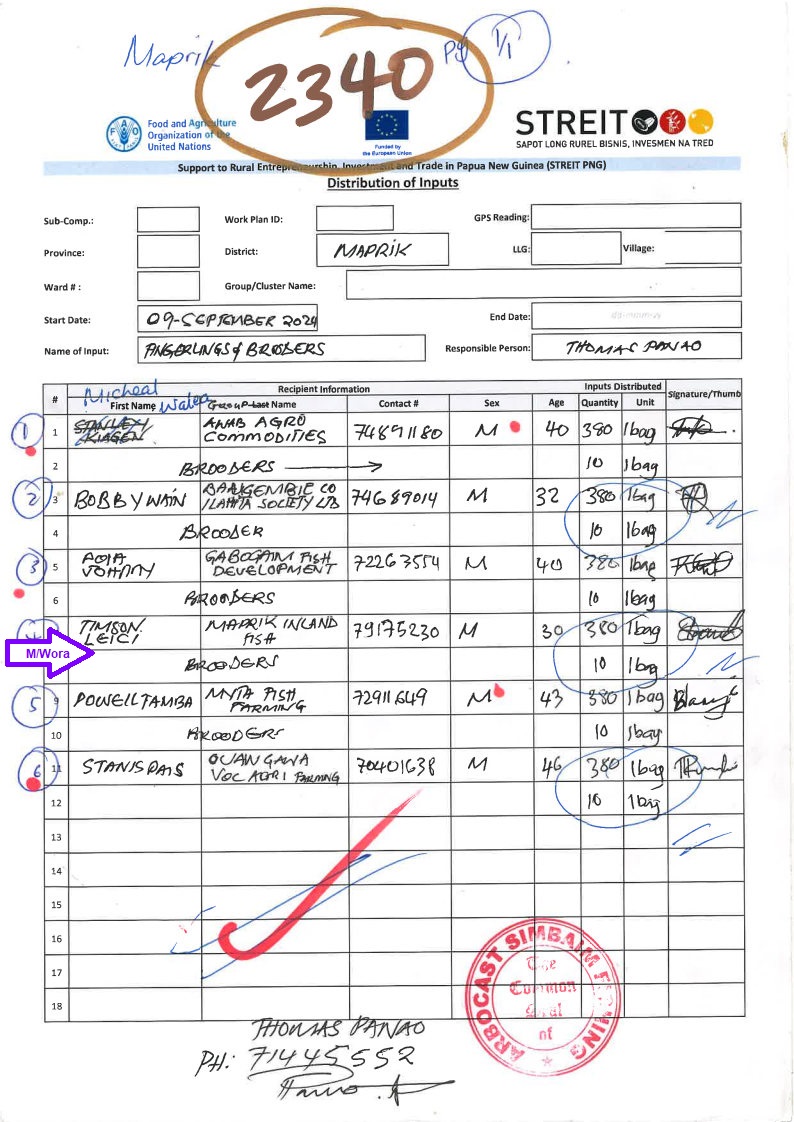 Maprik
2340
Pg 1/1
Food and Agriculture
Organization of the
United Nations
Funded by
the European Union
STREIT
SAPOT LONG RUREL BISNIS, INVESMEN NA TRED
Support to Rural Entrepreneurship, Investment and Trade in Papua New Guinea (STREIT PNG)
Distribution of Inputs
Sub-Comp.: Work Plan ID: GPS Reading:
Province: District: MAPRIK LLG: Village:
Ward #: Group/Cluster Name:
Start Date: 09-SEPTEMBER 2024 End Date: dd-mmm-yy
Name of Input: FINGERLINGS & BROODERS Responsible Person: THOMAS PANAO
Micheal
# Recipient Information Inputs Distributed Signature/Thumb
First Name Group Last Name Contact # Sex Age Quantity Unit
1 1 STANLEY ANAB AGRO COMMODITIES 74891180 M 40 380 1bag
2 BROODERS 10 1bag
2 3 BOBBY WAIN SOCIETY LTD 74689014 M 32 380 1bag
4 BROODER 10 1bag
3 5 JOHNNY GABOGAIM FISH DEVELOPMENT 72263554 M 40 380 1bag
6 BROODERS 10 1bag
TIMSON LEICI MAPRIK INLAND FISH 79175230 M 30 380 1bag
M/Wora
BROODERS 10 1bag
5 9 POWEIL TAMBA MYTA FISH FARMING 72911649 M 43 380 1bag
10 BROODERS 10 1bag
6 11 STANIS DAIS VOC AGRI FARMING 70401638 M 46 380 1bag
12 10 1bag
13
14
15
16
17
18
ARBOCAST SIMBAIM FISHING
The
Common
Seal
of
THOMAS PANAO
PH: 71445552